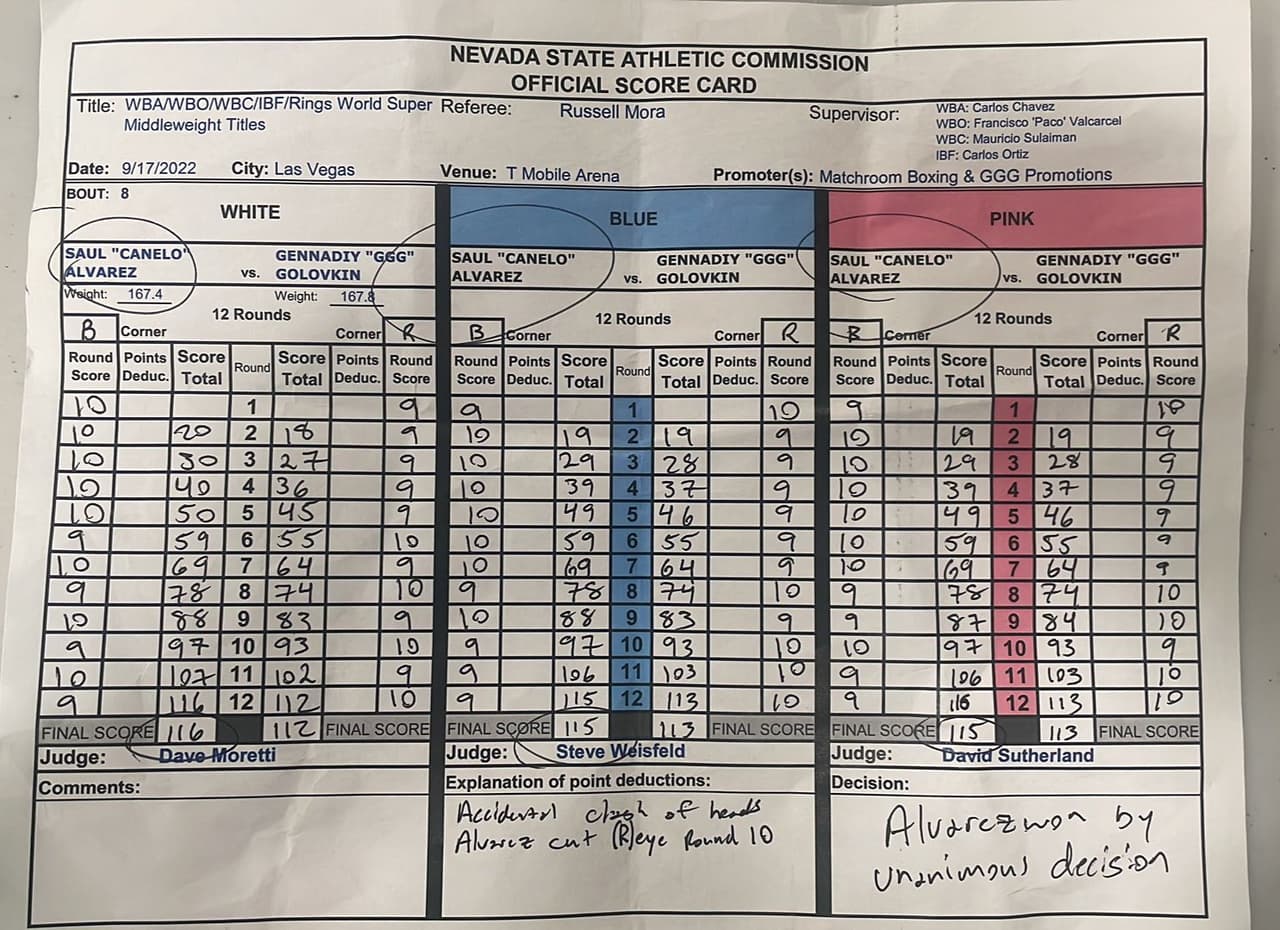 NEVADA STATE ATHLETIC COMMISSION
OFFICIAL SCORE CARD
Title: WBA/WBO/WBC/IBF/Rings World Super Middleweight Titles
Referee: Russell Mora
Supervisor: WBA: Carlos Chavez
WBO: Francisco 'Paco' Valcarcel
WBC: Mauricio Sulaiman
IBF: Carlos Ortiz
Date: 9/17/2022 City: Las Vegas Venue: T Mobile Arena Promoter(s): Matchroom Boxing & GGG Promotions
BOUT: 8
WHITE
SAUL "CANELO" ALVAREZ vs. GENNADIY "GGG" GOLOVKIN
Weight: 167.4 Weight: 167.8
12 Rounds
B Corner Corner R
Round Score Points Deduc. Score Total Round Score Total Points Deduc. Round Score
10 1 9
10 20 2 18 9
10 30 3 27 9
10 40 4 36 9
10 50 5 45 9
9 59 6 55 10
10 69 7 64 9
9 78 8 74 10
10 88 9 83 9
9 97 10 93 10
10 107 11 102 9
9 116 12 112 10
FINAL SCORE 116 112 FINAL SCORE
Judge: Dave Moretti
Comments:
BLUE
SAUL "CANELO" ALVAREZ vs. GENNADIY "GGG" GOLOVKIN
12 Rounds
B Corner Corner R
Round Score Points Deduc. Score Total Round Score Total Points Deduc. Round Score
9 1 10
10 19 2 19 9
10 29 3 28 9
10 39 4 37 9
10 49 5 46 9
10 59 6 55 9
10 69 7 64 9
9 78 8 74 10
10 88 9 83 9
9 97 10 93 10
9 106 11 103 10
9 115 12 113 10
FINAL SCORE 115 113 FINAL SCORE
Judge: Steve Weisfeld
Explanation of point deductions:
Accidental clash of heads
Alvarez cut (R) eye Round 10
PINK
SAUL "CANELO" ALVAREZ vs. GENNADIY "GGG" GOLOVKIN
12 Rounds
B Corner Corner R
Round Score Points Deduc. Score Total Round Score Total Points Deduc. Round Score
9 1 10
10 19 2 19 9
10 29 3 28 9
10 39 4 37 9
10 49 5 46 9
10 59 6 55 9
10 69 7 64 9
9 78 8 74 10
9 87 9 84 10
10 97 10 93 9
9 106 11 103 10
9 12 113 10
FINAL SCORE 115 113 FINAL SCORE
Judge: David Sutherland
Decision:
Alvarez won by
unanimous decision